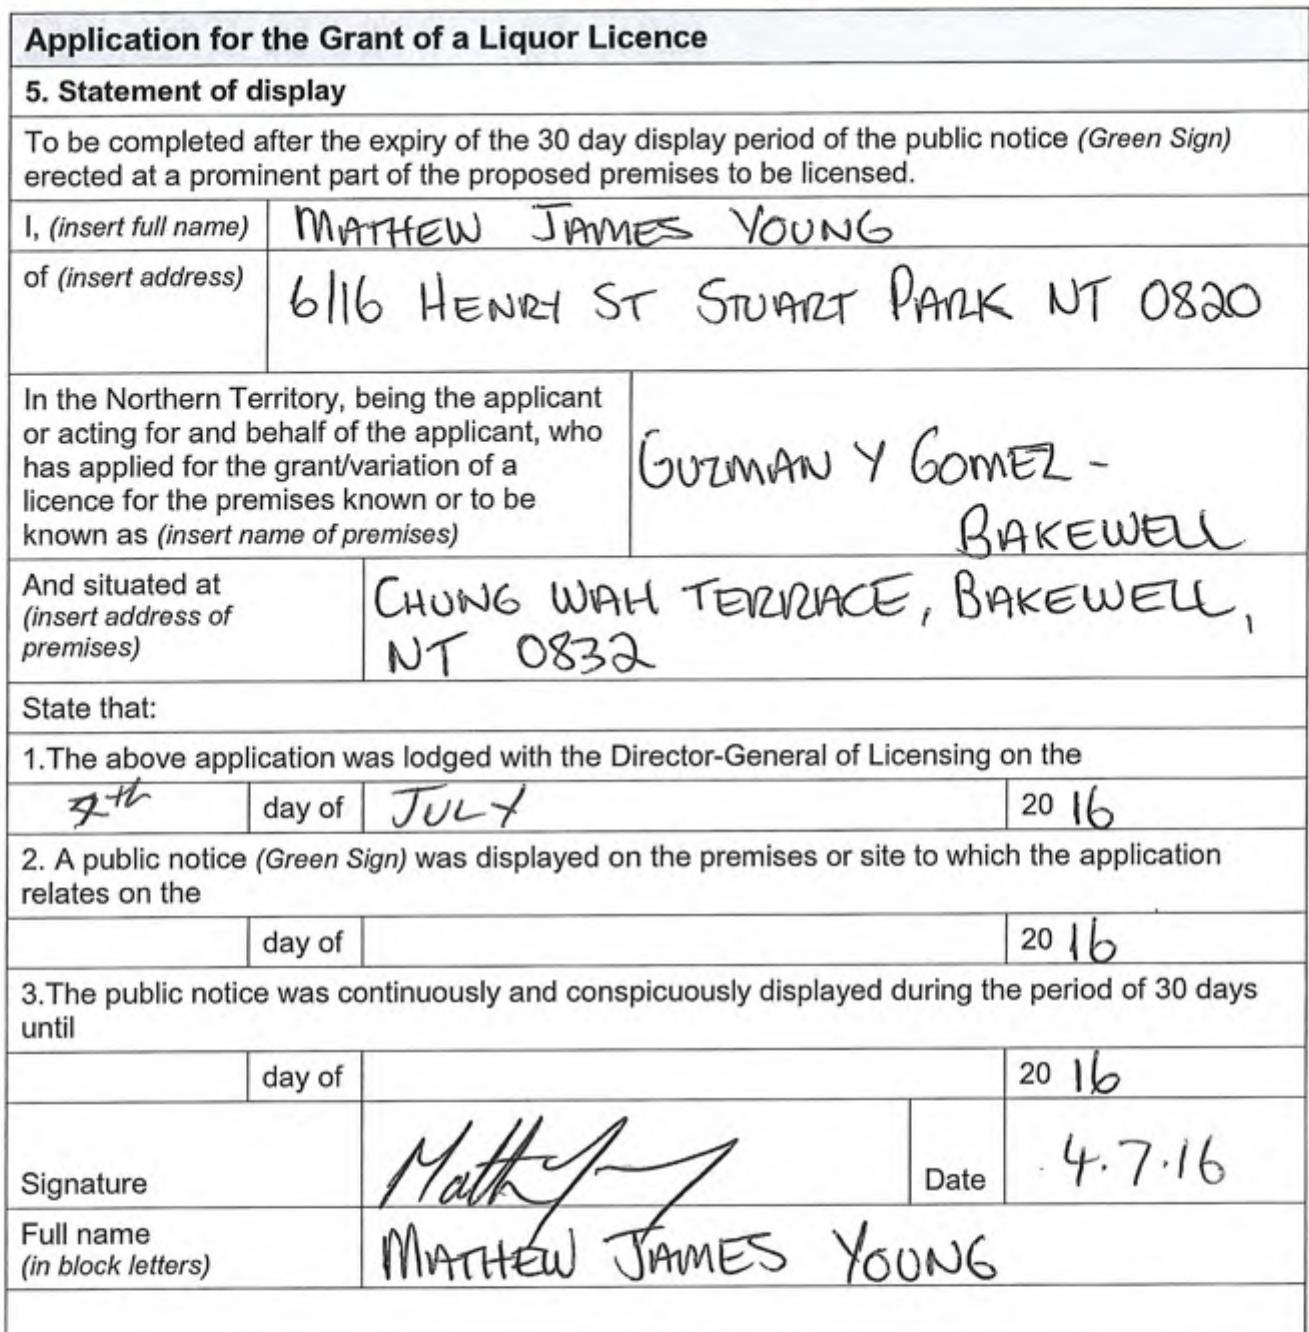 Application for the Grant of a Liquor Licence
5. Statement of display
To be completed after the expiry of the 30 day display period of the public notice (Green Sign)
erected at a prominent part of the proposed premises to be licensed.
I, (insert full name) MATHEW JAMES YOUNG
of (insert address) 6/16 HENRY ST STUART PARK NT 0820
In the Northern Territory, being the applicant
or acting for and behalf of the applicant, who
has applied for the grant/variation of a
licence for the premises known or to be
known as (insert name of premises)
GUZMAN Y GOMEZ -
BAKEWELL
And situated at
(insert address of
premises)
CHUNG WAH TERRACE, BAKEWELL,
NT 0832
State that:
1.The above application was lodged with the Director-General of Licensing on the
day of JULY 20 16
2. A public notice (Green Sign) was displayed on the premises or site to which the application
relates on the
day of 20 16
3.The public notice was continuously and conspicuously displayed during the period of 30 days
until
day of 20 16
Signature Date 4.7.16
Full name
(in block letters)
MATHEW JAMES YOUNG